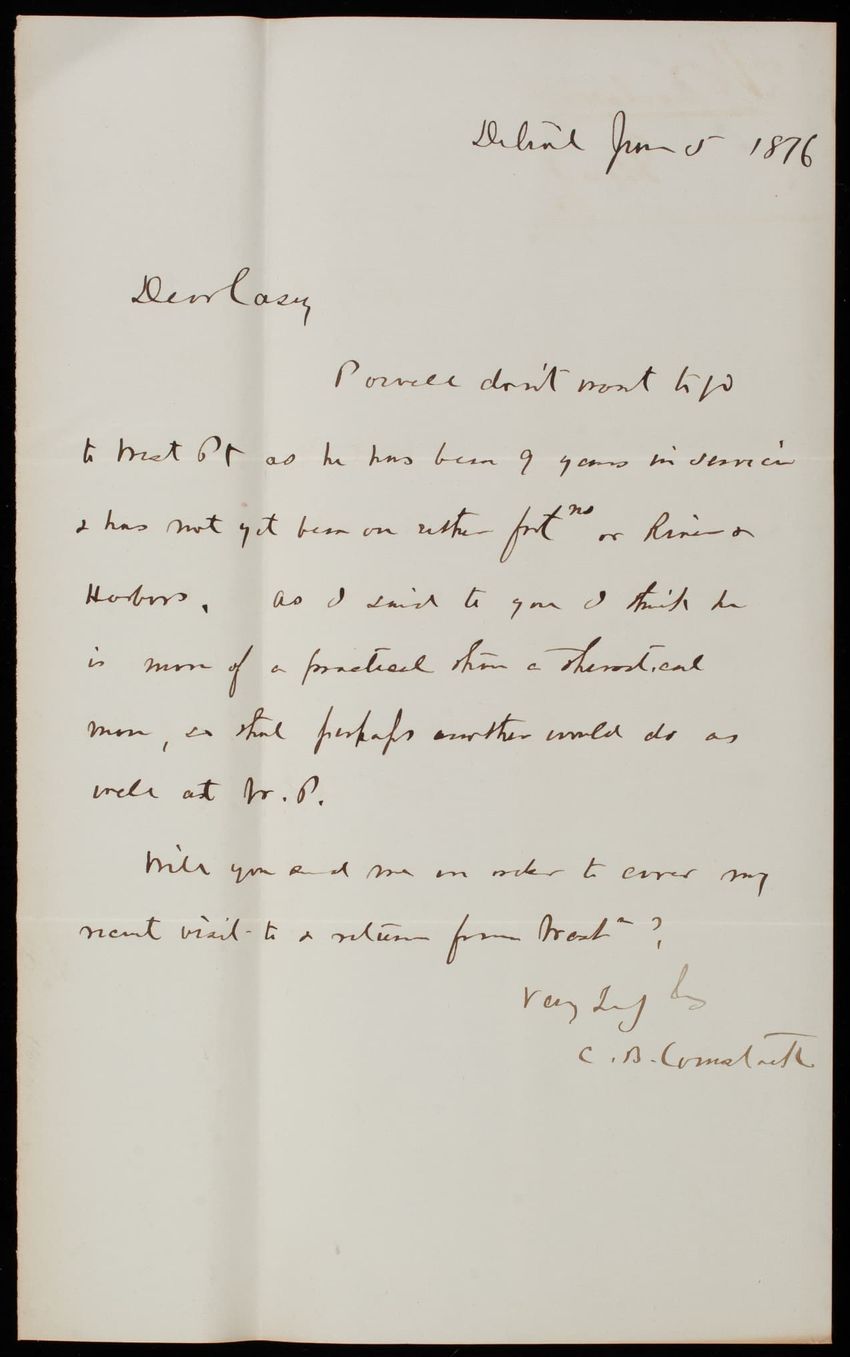 Detroit June 5 1876
Dear Casey
Powell don't want to go
to West Pt as he has been 9 years in service
& has not yet been on either fort ns or River &
Harbors. As I said to you I think he
is more of a practical than a theoretical
man, so that perhaps another would do as
well at W.P.
Will you send me an order to cover my
recent visit to & return from Wash n?
Very Truly
C.B. Comstock